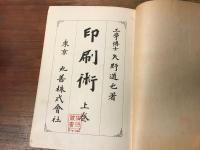 工學博士 矢野道也著
印刷術 上卷
東京 丸善株式會社